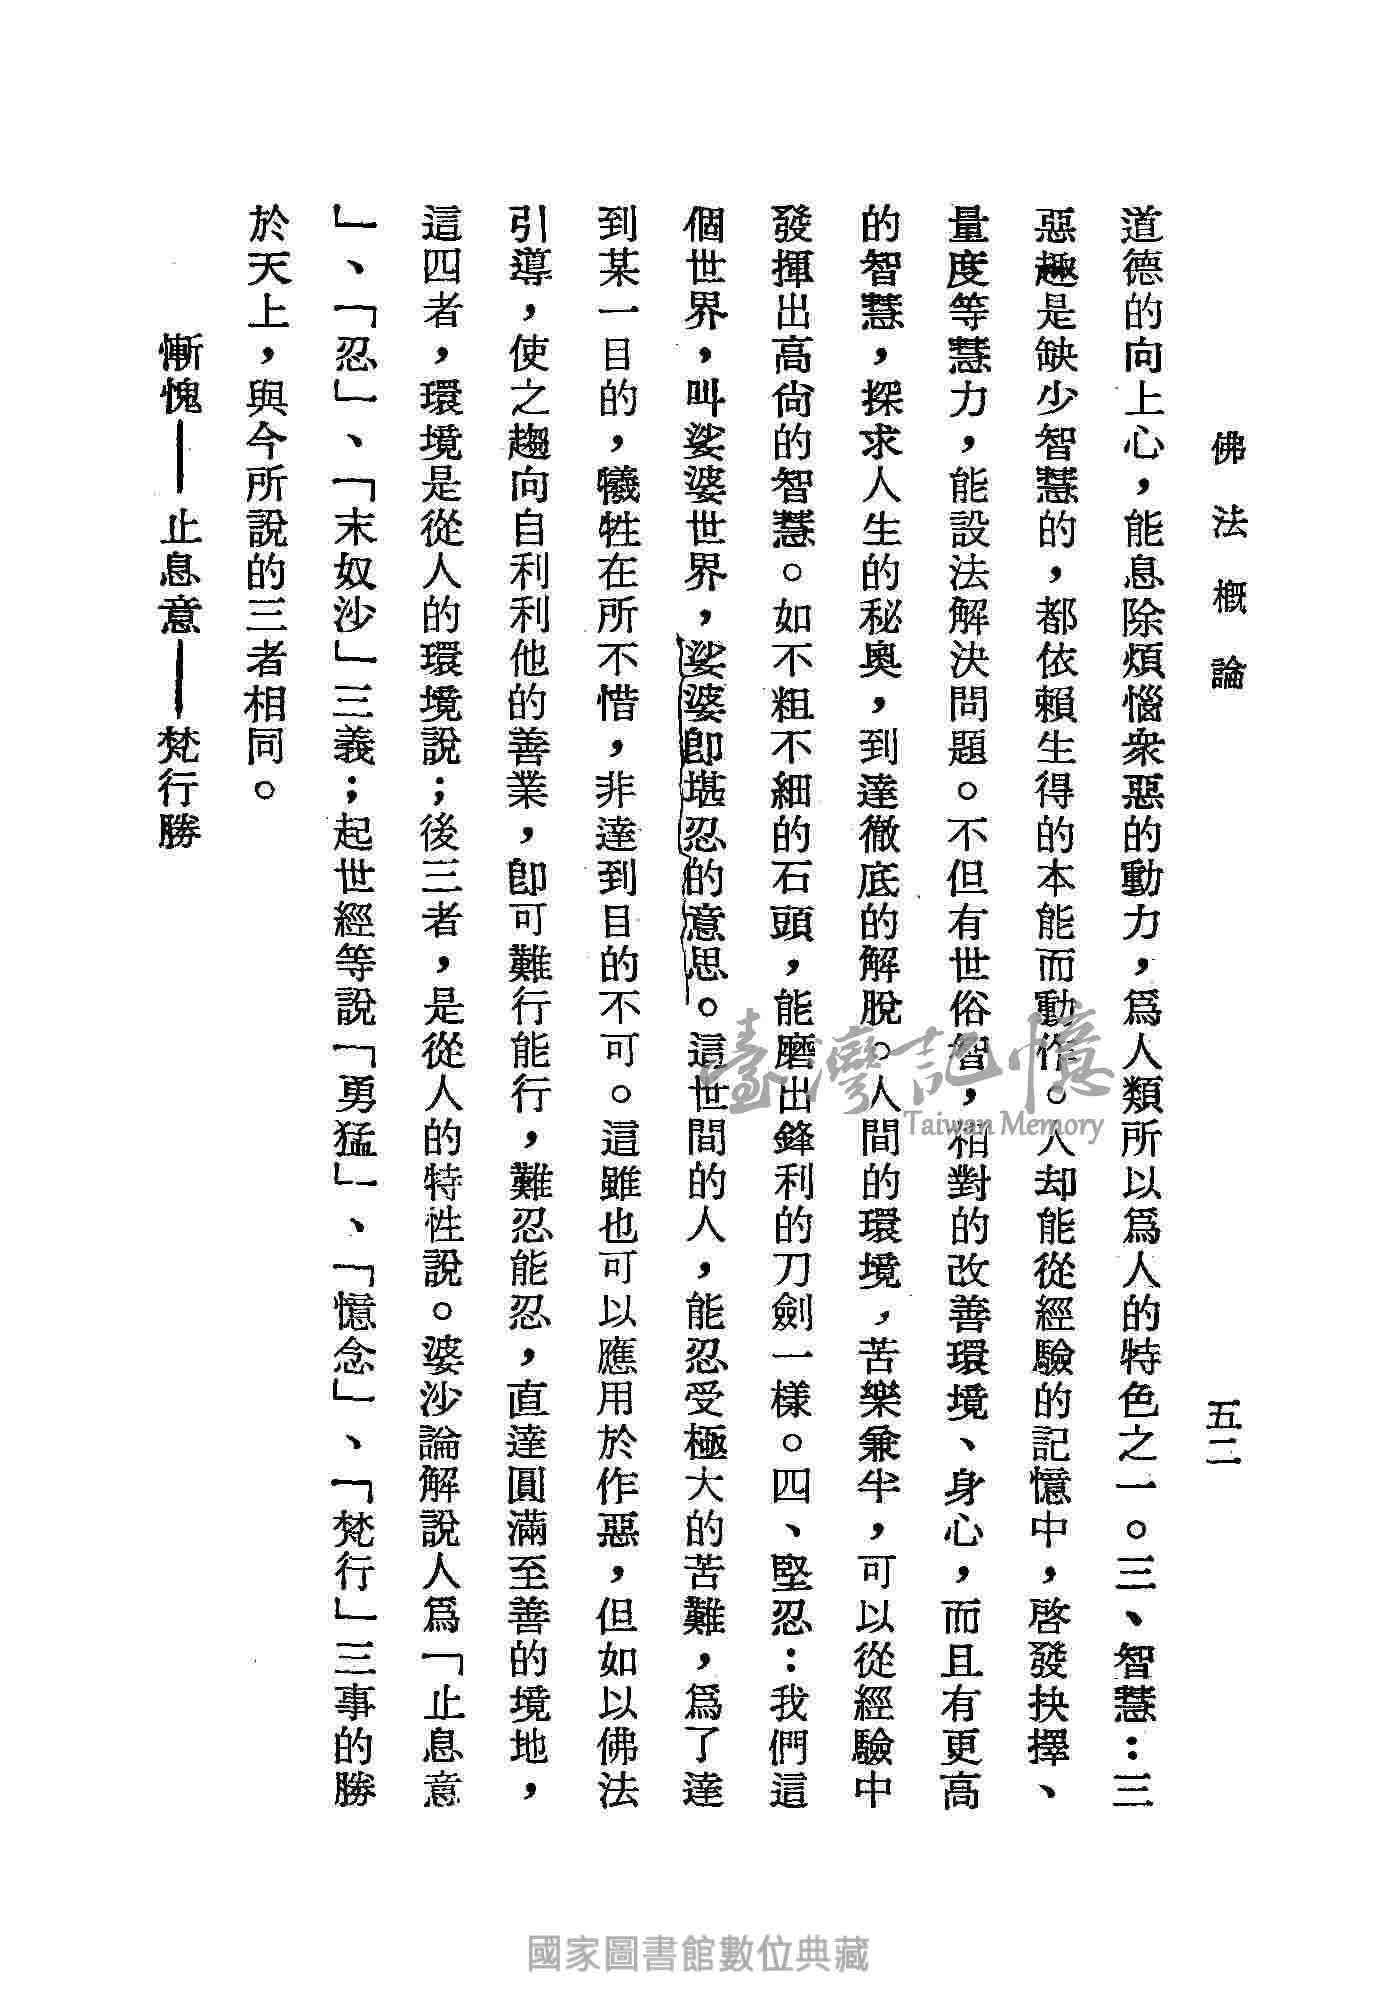 佛法概論
五二
道德的向上心，能息除煩惱衆惡的動力，爲人類所以爲人的特色之一。三、智慧：三
惡趣是缺少智慧的，都依賴生得的本能而動作。人却能從經驗的記憶中，啓發抉擇、
量度等慧力，能設法解決問題。不但有世俗智，相對的改善環境、身心，而且有更高
的智慧，探求人生的秘奧，到達徹底的解脫。人間的環境，苦樂兼半，可以從經驗中
發揮出高尙的智慧。如不粗不細的石頭，能磨出鋒利的刀劍一樣。四、堅忍：我們這
個世界，叫娑婆世界，娑婆卽堪忍的意思。這世間的人，能忍受極大的苦難，爲了達
到某一目的，犧牲在所不惜，非達到目的不可。這雖也可以應用於作惡，但如以佛法
引導，使之趨向自利利他的善業，卽可難行能行，難忍能忍，直達圓滿至善的境地，
這四者，環境是從人的環境說；後三者，是從人的特性說。婆沙論解說人爲「止息意
」、「忍」、「末奴沙」三義；起世經等說「勇猛」、「憶念」、「梵行」三事的勝
於天上，與今所說的三者相同。
慚愧──止息意──梵行勝
臺灣記憶
Taiwan Memory
國家圖書館數位典藏